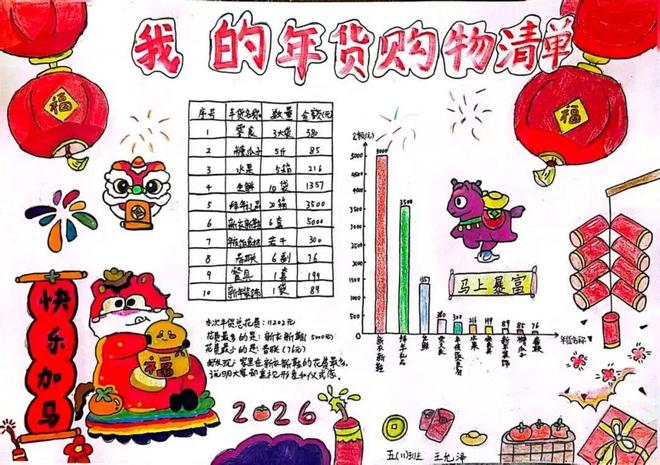 我的年货购物清单
福
福
序号 年货名称 数量 金额(元)
1 零食 3大袋 380
2 糖瓜子 5斤 85
3 水果 5箱 216
4 生鲜 10袋 1357
5 拜年礼品 20箱 3500
6 新衣新鞋 6套 5000
7 若干 300
8 春联 6副 76
9 餐具 1套 199
10 新年装饰 1袋 89
本次年货总花费:11202元
花费最多的是:新衣新鞋(5000元)
花费最少的是:春联(76元)
我发现:家里在新衣新鞋的花费最多,
说明大家都重视形象和仪式感。
金额(元)
5000
4500
4000
3500
3000
2500
2000
1500
1000
500
0
5000
3500
1357
380
300
216
199
89
85
76
新衣新鞋
拜年礼品
生鲜
水果
春联
年货名称
马上暴富
快乐加马
福
2026
五(11)班 王允泽